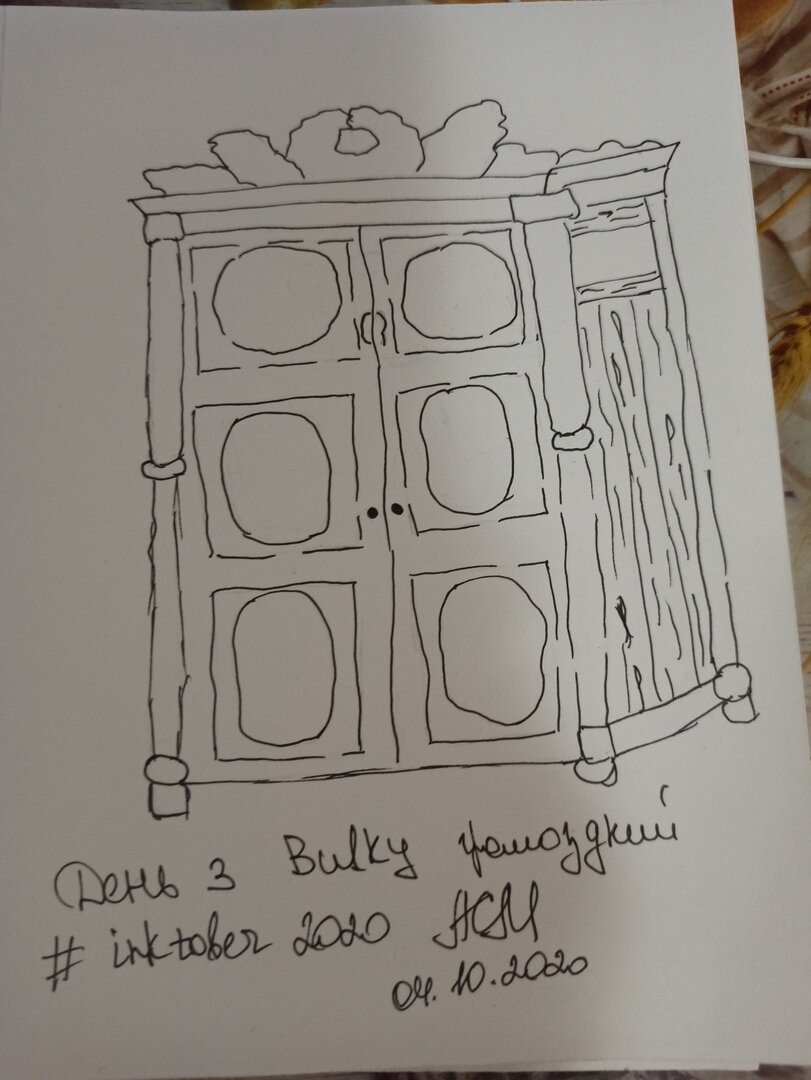 День 3 Bulky громоздкий
# inktober 2020 АСМ
04.10.2020